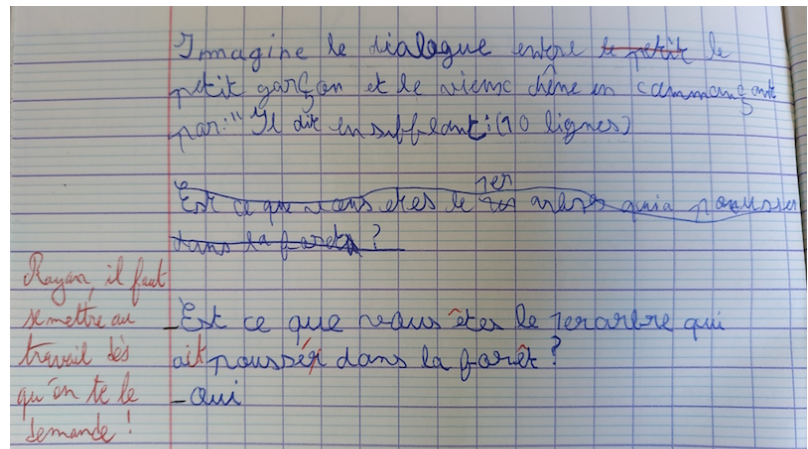 Immagine le dialogue entre le petit le
petit garçon et le vieux chêne en commançant
par: "Il dit en sufflant: (10 lignes)
Est ce que vous etes le 1er arbre qui a pousser
dans la foret ?
Rayan, il faut
se mettre au
travail dès
qu'on te le
demande !
_Est ce que vous êtes le 1er arbre qui
ait poussé dans la forêt ?
_Oui